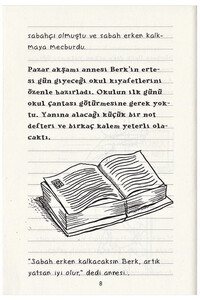 sabahçı olmuştu ve sabah erken kalk-
maya mecburdu.
Pazar akşamı annesi Berk'in erte-
si gün giyeceği okul kıyafetlerini
özenle hazırladı. Okulun ilk günü
okul çantası götürmesine gerek yok-
tu. Yanına alacağı küçük bir not
defteri ve birkaç kalem yeterli ola-
caktı.
"Sabah erken kalkacaksın Berk, artık
yatsan iyi olur," dedi annesi.
8